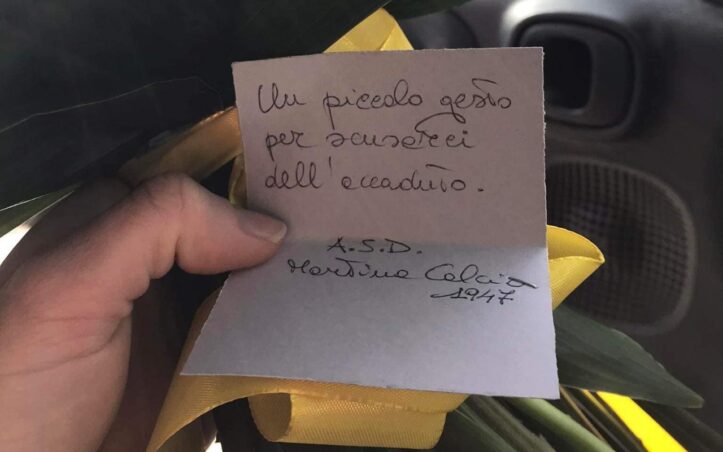 Un piccolo gesto
per scusarci
dell'accaduto.
A.S.D.
Martina Calcio
1947